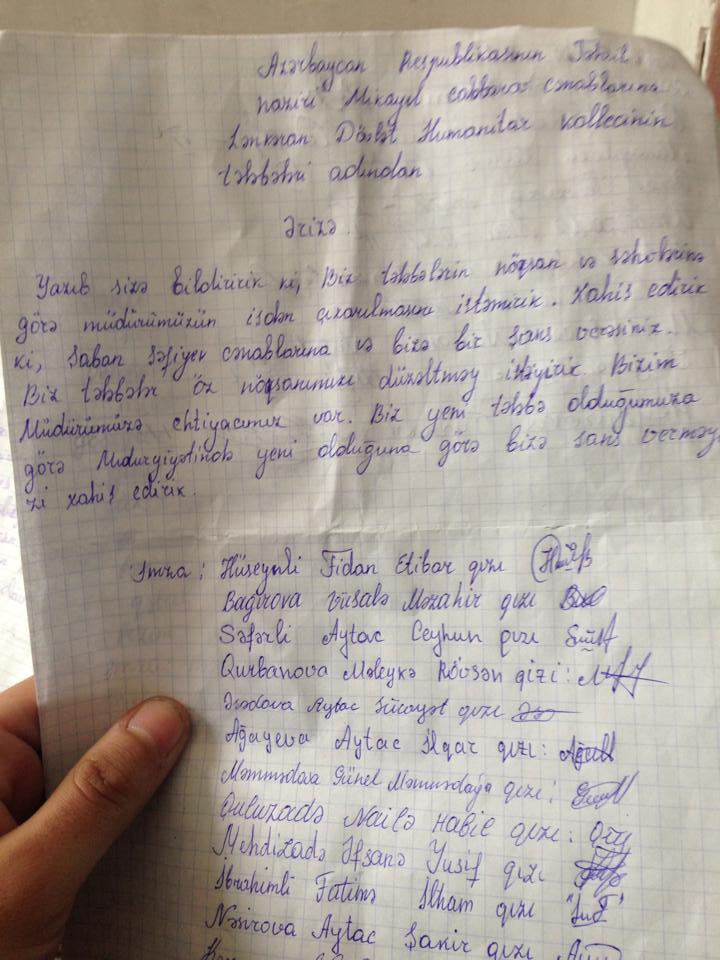 Azərbaycan Respublikasının Təhsil
naziri Mikayıl cabbarov cənablarına
Lənkəran Dövlət Humanitar kollecinin
tələbələri adından
Ərizə.
Yazıb sizə bildiririk ki, Biz tələbələrin nöqsan və səhvlərinə
görə müdürümüzün isdən çıxarılmasını istəmirik. Xahis edirik
ki, Saban Səfiyev cənablarına və bizə bir sans verəsiniz.
Biz tələbələr öz nöqsanımızı düzəltməy istəyirik. Bizim
Müdürümüzə ehtiyacımız var. Biz yeni tələbə olduğumuza
görə yeni olduğuna görə bizə sans verməyi
zi xahis edirik.
Imza: Hüseynli Fidan Etibar qızı
Bağırova Vüsalə Məzahir qızı
Səfərli Aytac Ceyhun qızı
Qurbanova Mələykə Rövsən qizi:
Əsədova Aytac qızı
Ağayeva Aytac İlqar qızı:
Məmmədova Günel Məmmədağa qızı:
Quluzadə Nailə Habil qızı:
Mehdizadə Əfsanə Yusif qızı
İbrahimli Fatimə İlham qızı
Nəsirova Aytac Sakir qızı